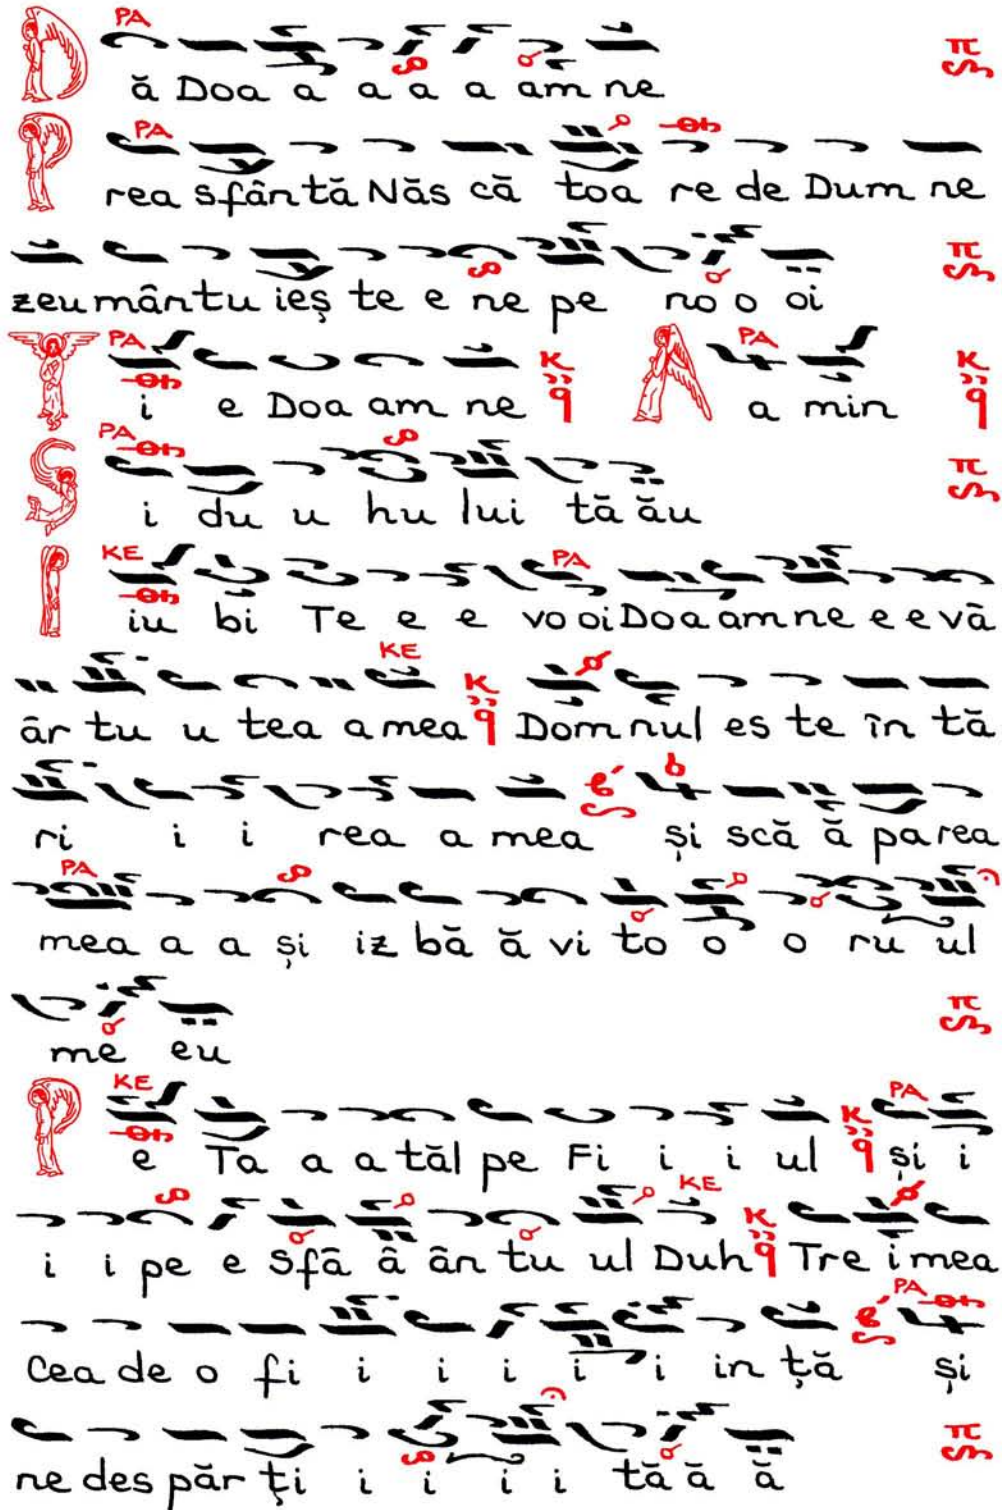 PA
Dă Doa a a a a am ne
PA
Prea sfântă Năs că toa re de Dum ne
zeu mântu ieș te e ne pe no o oi
PA PA
Ți e Doa am ne A a min
PA
Și du u hu lui tă ău
KE PA
Iiu bi Te e e vo oi Doa am ne e e vâ
KE
âr tu u tea a mea Dom nul es te în tă
ri i i rea a mea și scă ă pa rea
PA
mea a a și iz bă ă vi to o o ru ul
me eu
KE PA
Pe Ta a a tăl pe Fi i i ul și i
KE
i i pe e Sfâ â ân tu ul Duh Tre i mea
PA
Cea de o fi i i i i i in ță și
ne des păr ți i i i i tă ă ă